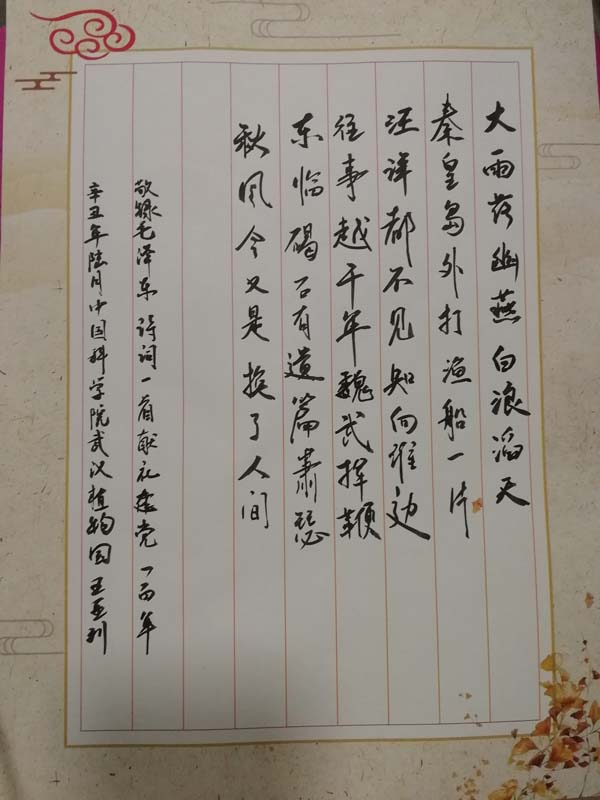 大雨落幽燕白浪滔天
秦皇岛外打渔船一片
汪洋都不见知向谁边
往事越千年魏武挥鞭
东临碣石有遗篇萧瑟
秋风今又是换了人间
敬録毛泽东诗词一首献礼建党一百年
辛丑年陆月中国科学院武汉植物园王亚利